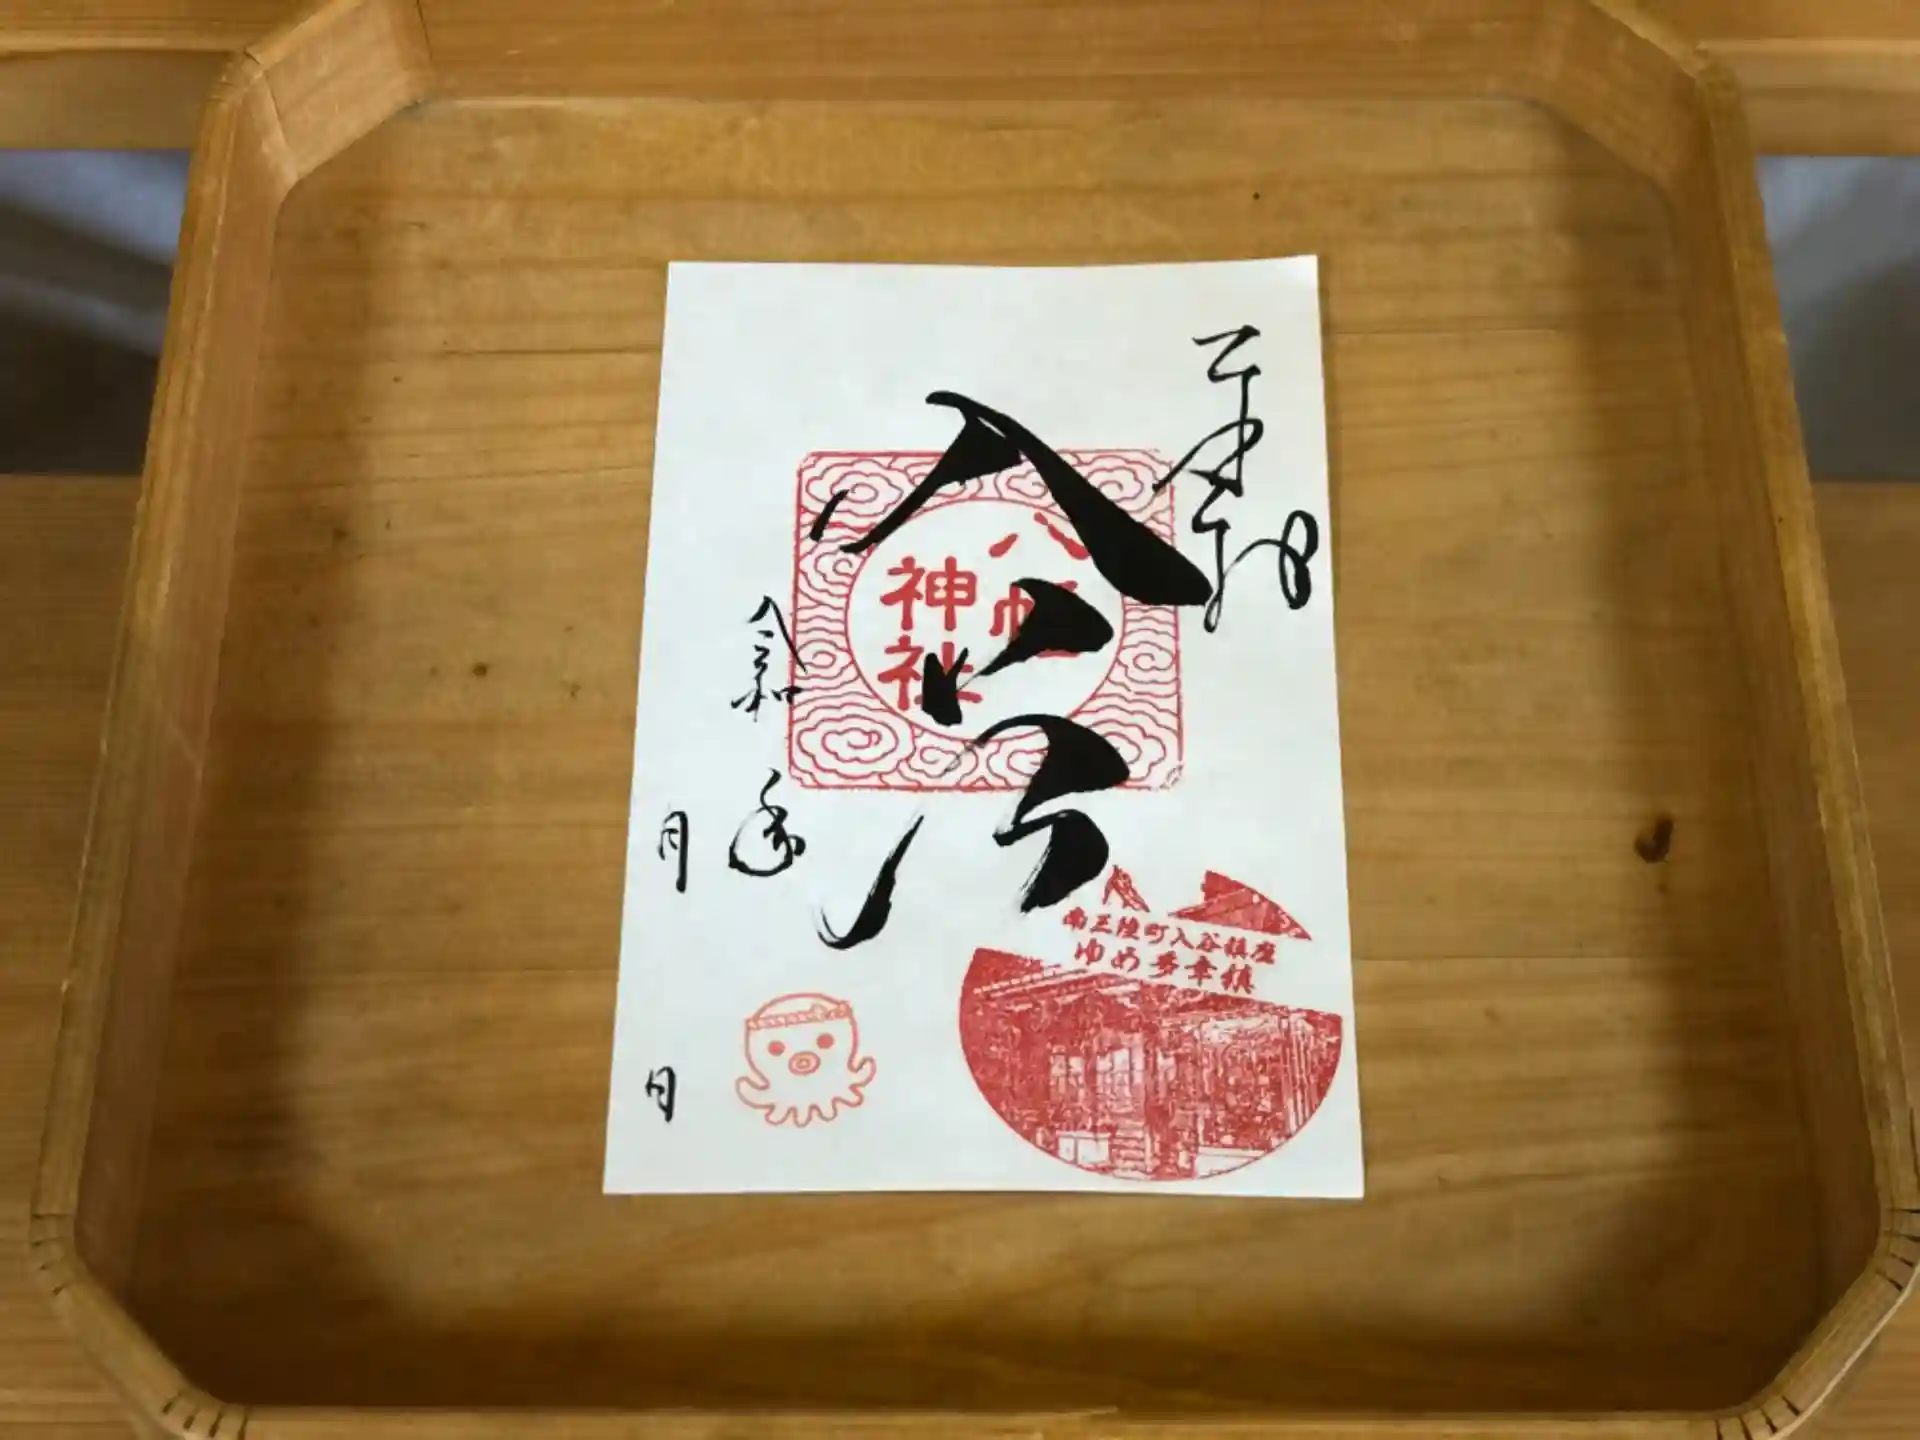 奉拝
入谷
八幡
神社
令和 年
月 日
南三陸町入谷鎮座
ゆめ多幸鎮